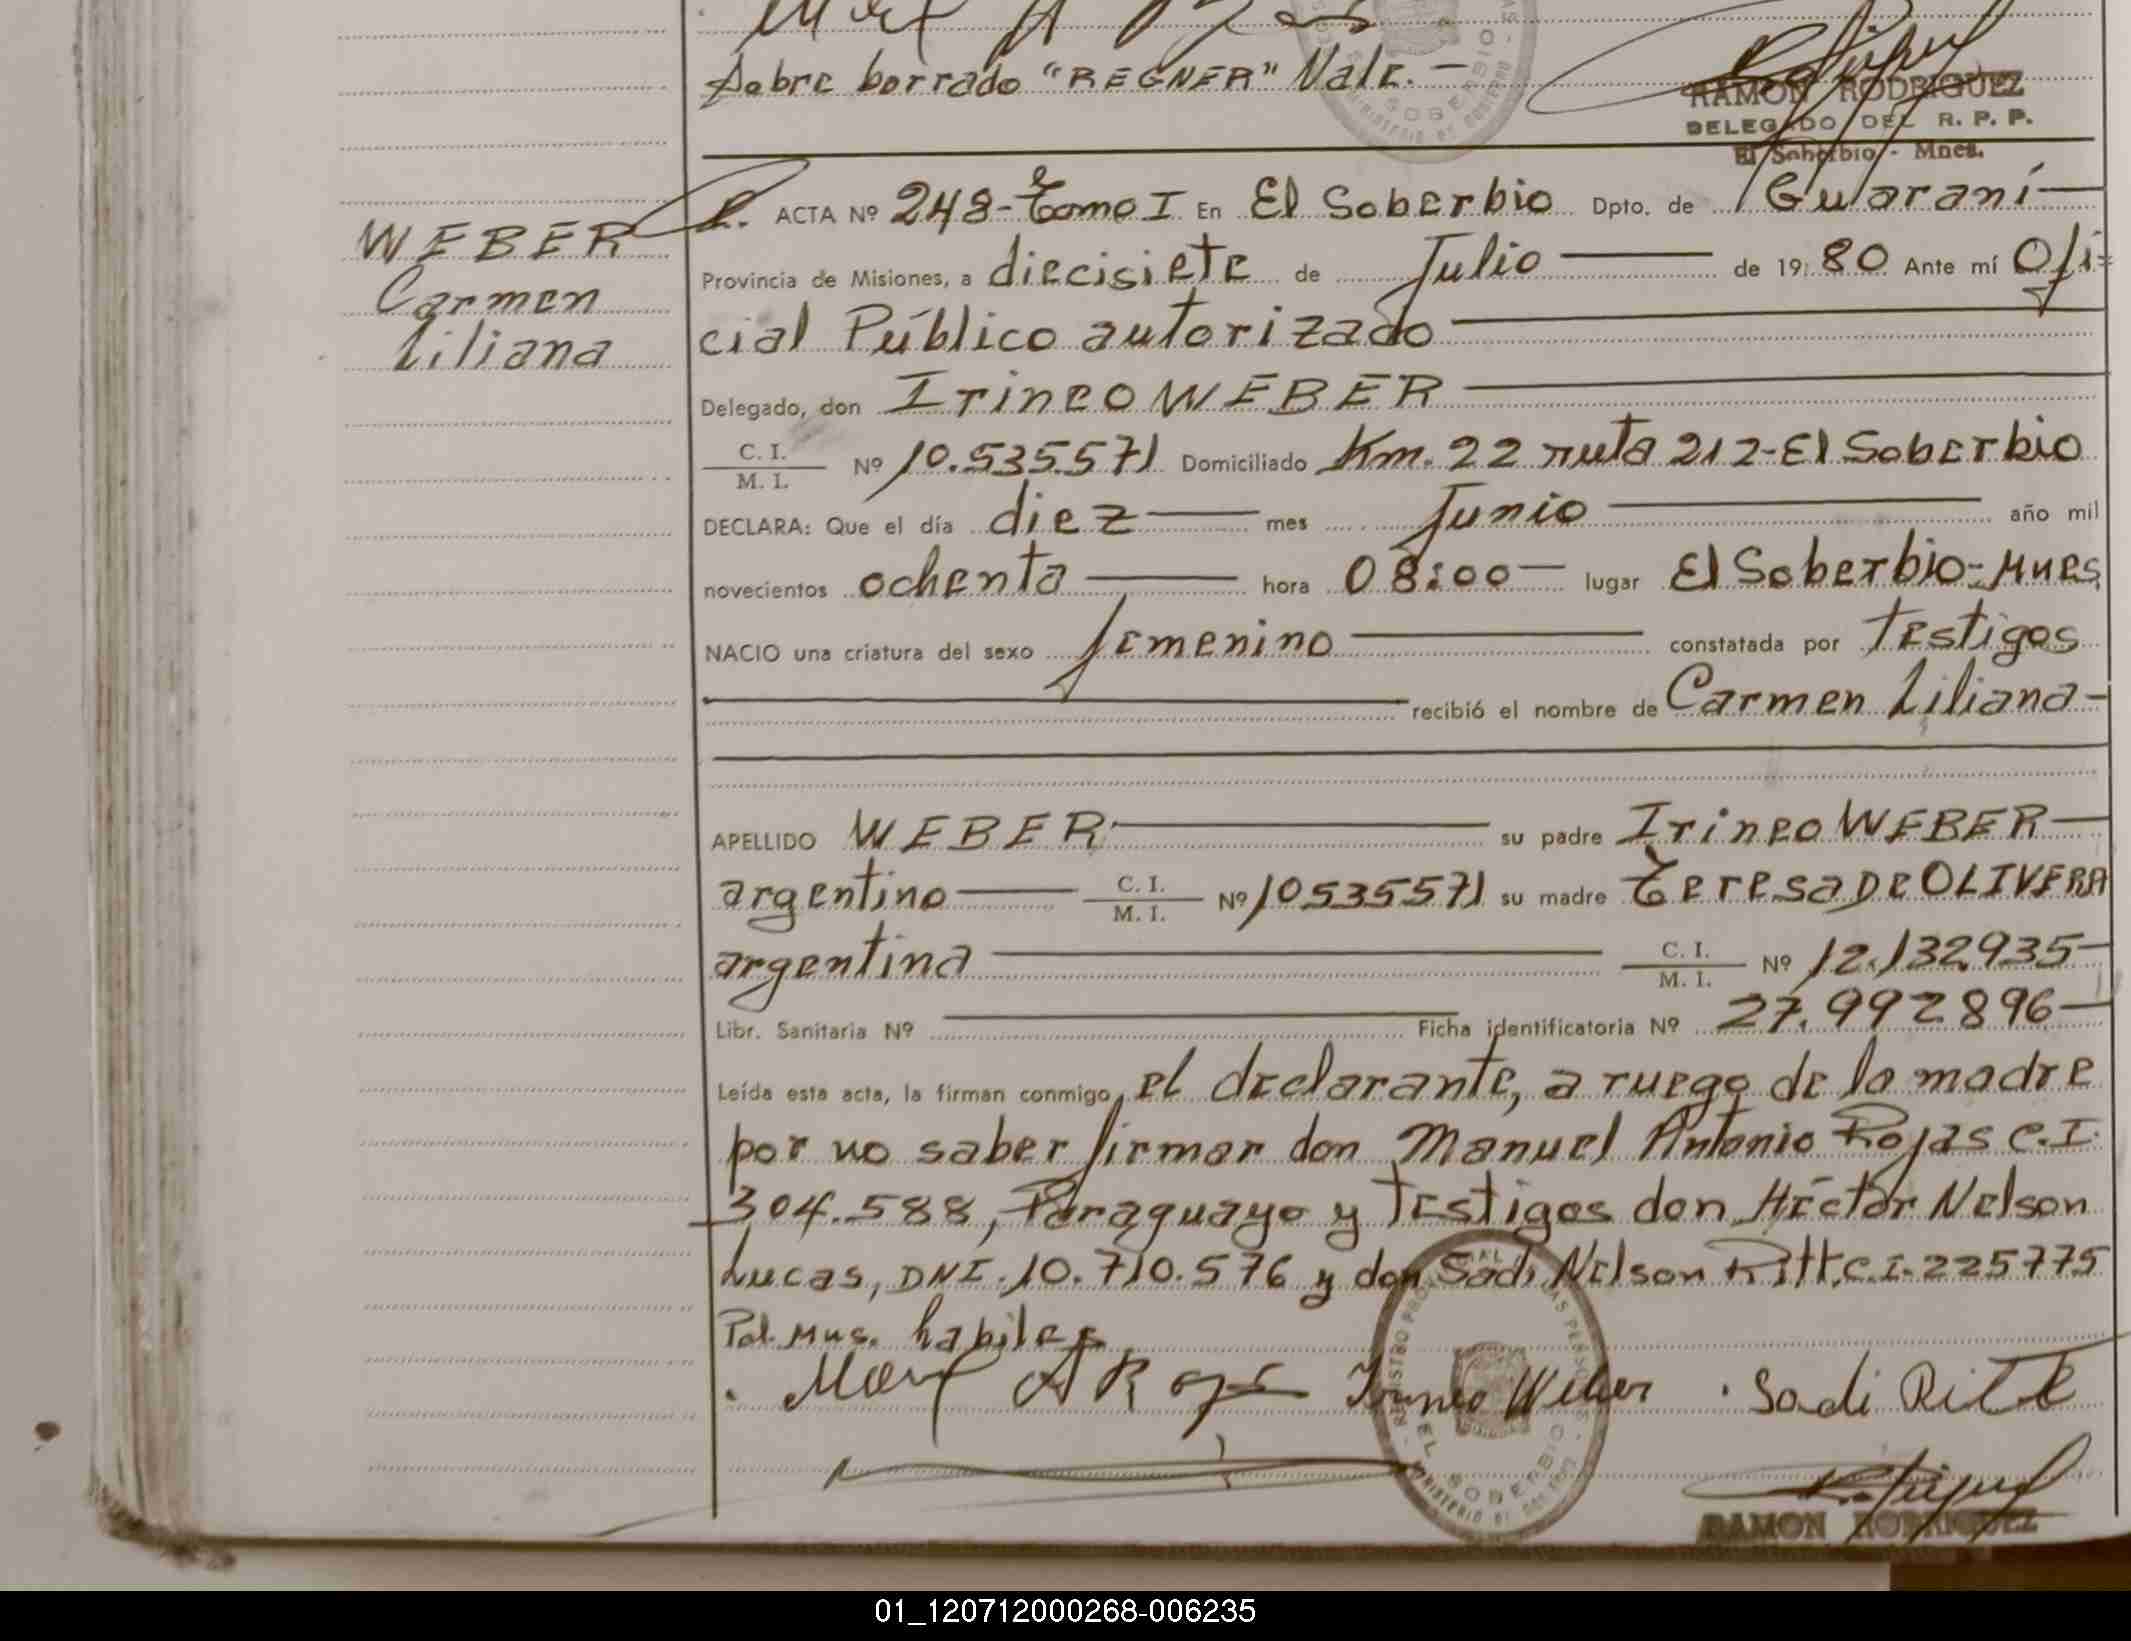 Sobre borrado "REGNER" Vale.—
RAMON RODRIGUEZ
DELEGADO DEL R. P. P.
El Soberbio - Mnes.
WEBER
Carmen
Liliana
ACTA Nº 248-Tomo I En El Soberbio Dpto. de Guaraní
Provincia de Misiones, a diecisiete de Julio de 19 80 Ante mí Ofi=
cial Público autorizado
Delegado, don Irineo WEBER
C. I.
M. I. Nº 10.535.571 Domiciliado Km. 22 ruta 212-El Soberbio
DECLARA: Que el día diez mes Junio año mil
novecientos ochenta hora 08:00 lugar El Soberbio-Mnes
NACIO una criatura del sexo femenino constatada por Testigos
recibió el nombre de Carmen Liliana
APELLIDO WEBER su padre Irineo WEBER
argentino C. I.
M. I. Nº 10535571 su madre Teresa De OLIVERA
argentina C. I.
M. I. Nº 12.132.935
Libr. Sanitaria Nº Ficha identificatoria Nº 27.992896
Leída esta acta, la firman conmigo, el declarante, a ruego de la madre
por no saber firmar don Manuel Antonio Rojas C.I.
304.588, Paraguayo y Testigos don Héctor Nelson
Lucas, DNI. 10.710.576 y don Sadi Nelson Ritt. C.I. 225775
Pol. Mns. habiles
Irineo Weber Sadi Ritt
EL SOBERBIO
RAMON RODRIGUEZ
01_120712000268-006235